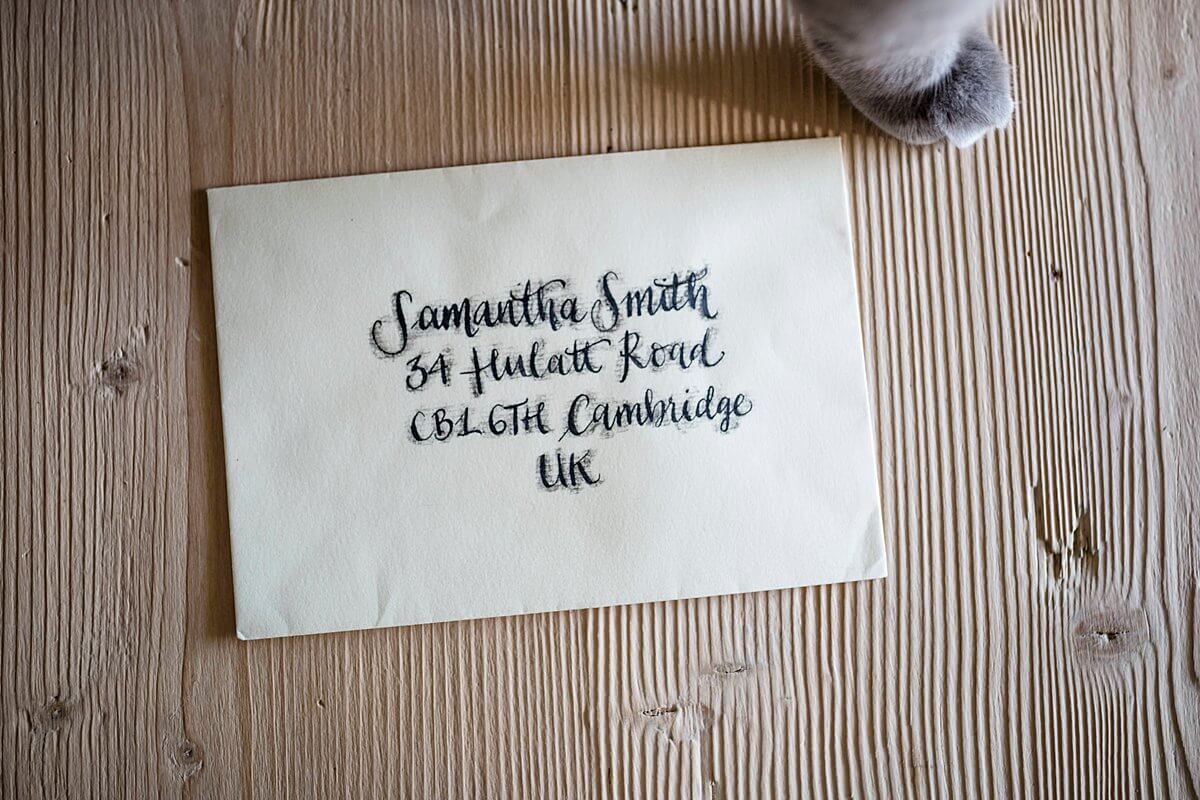 Samantha Smith
34 Hulatt Road
CB1 6TH Cambridge
UK